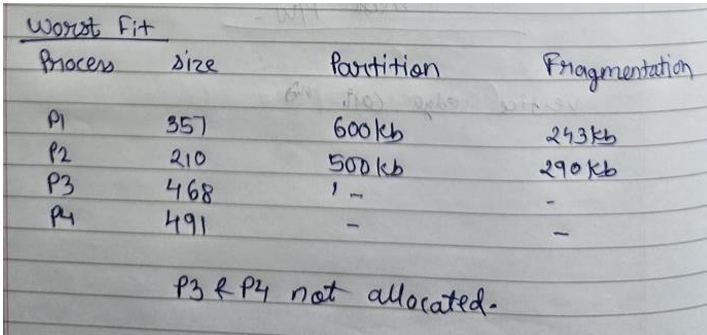 Worst Fit
Process Size Partition Fragmentation
P1 357 600kb 243kb
P2 210 500kb 290kb
P3 468 - -
P4 491 - -
P3 & P4 not allocated.